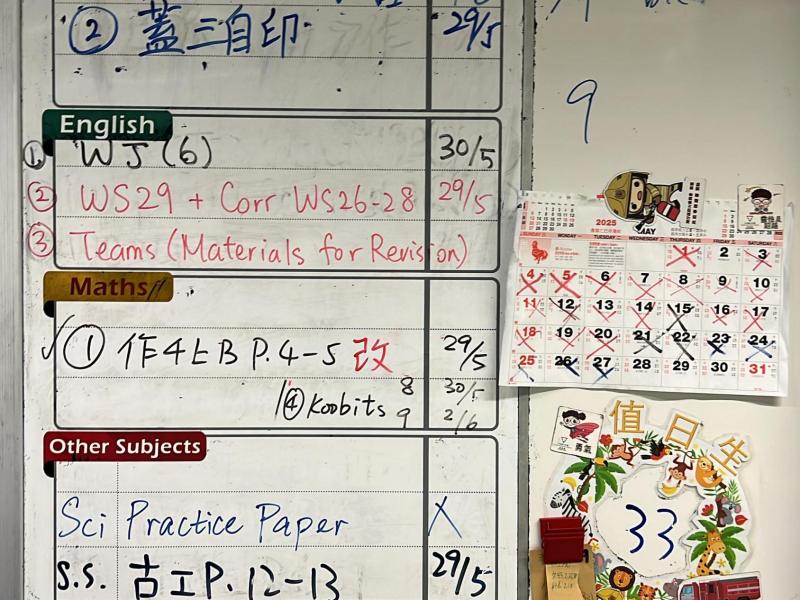 ② 蓋三自印 29/5
English
1. WJ(6) 30/5
② WS29 + Corr WS26-28 29/5
③ Teams (Materials for Revision)
Maths
✓ ① 作4上B P.4-5 改 29/5
④ Koobits 8 30/5
9 2/6
Other Subjects
Sci Practice Paper X
S.S. 古工P.12-13 29/5
9
2025
MAY
MONDAY TUESDAY WEDNESDAY THURSDAY FRIDAY SATURDAY
1 2 3
4 5 6 7 8 9 10
11 12 13 14 15 16 17
18 19 20 21 22 23 24
25 26 27 28 29 30 31
值日生
勇氣
33